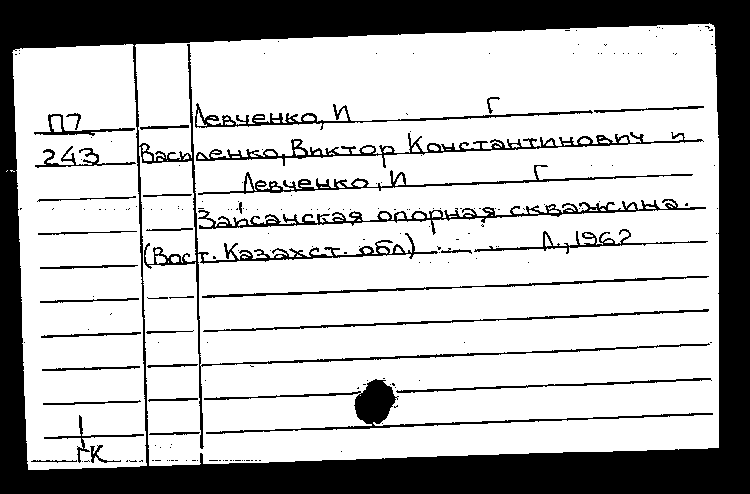 П7 Левченко, И Г
243 Василенко, Виктор Константинович и
Левченко, И Г
Зайсанская опорная скважина.
(Вост. Казахст. обл) ... . Л., 1962
ГК